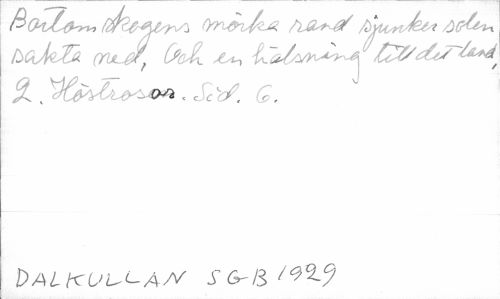 Bortom skogens mörka rand sjunker solen
sakta ned, Och en hälsning till det land,
2. Höstrosor. Sid. 6.
DALKULLAN SGB 1929